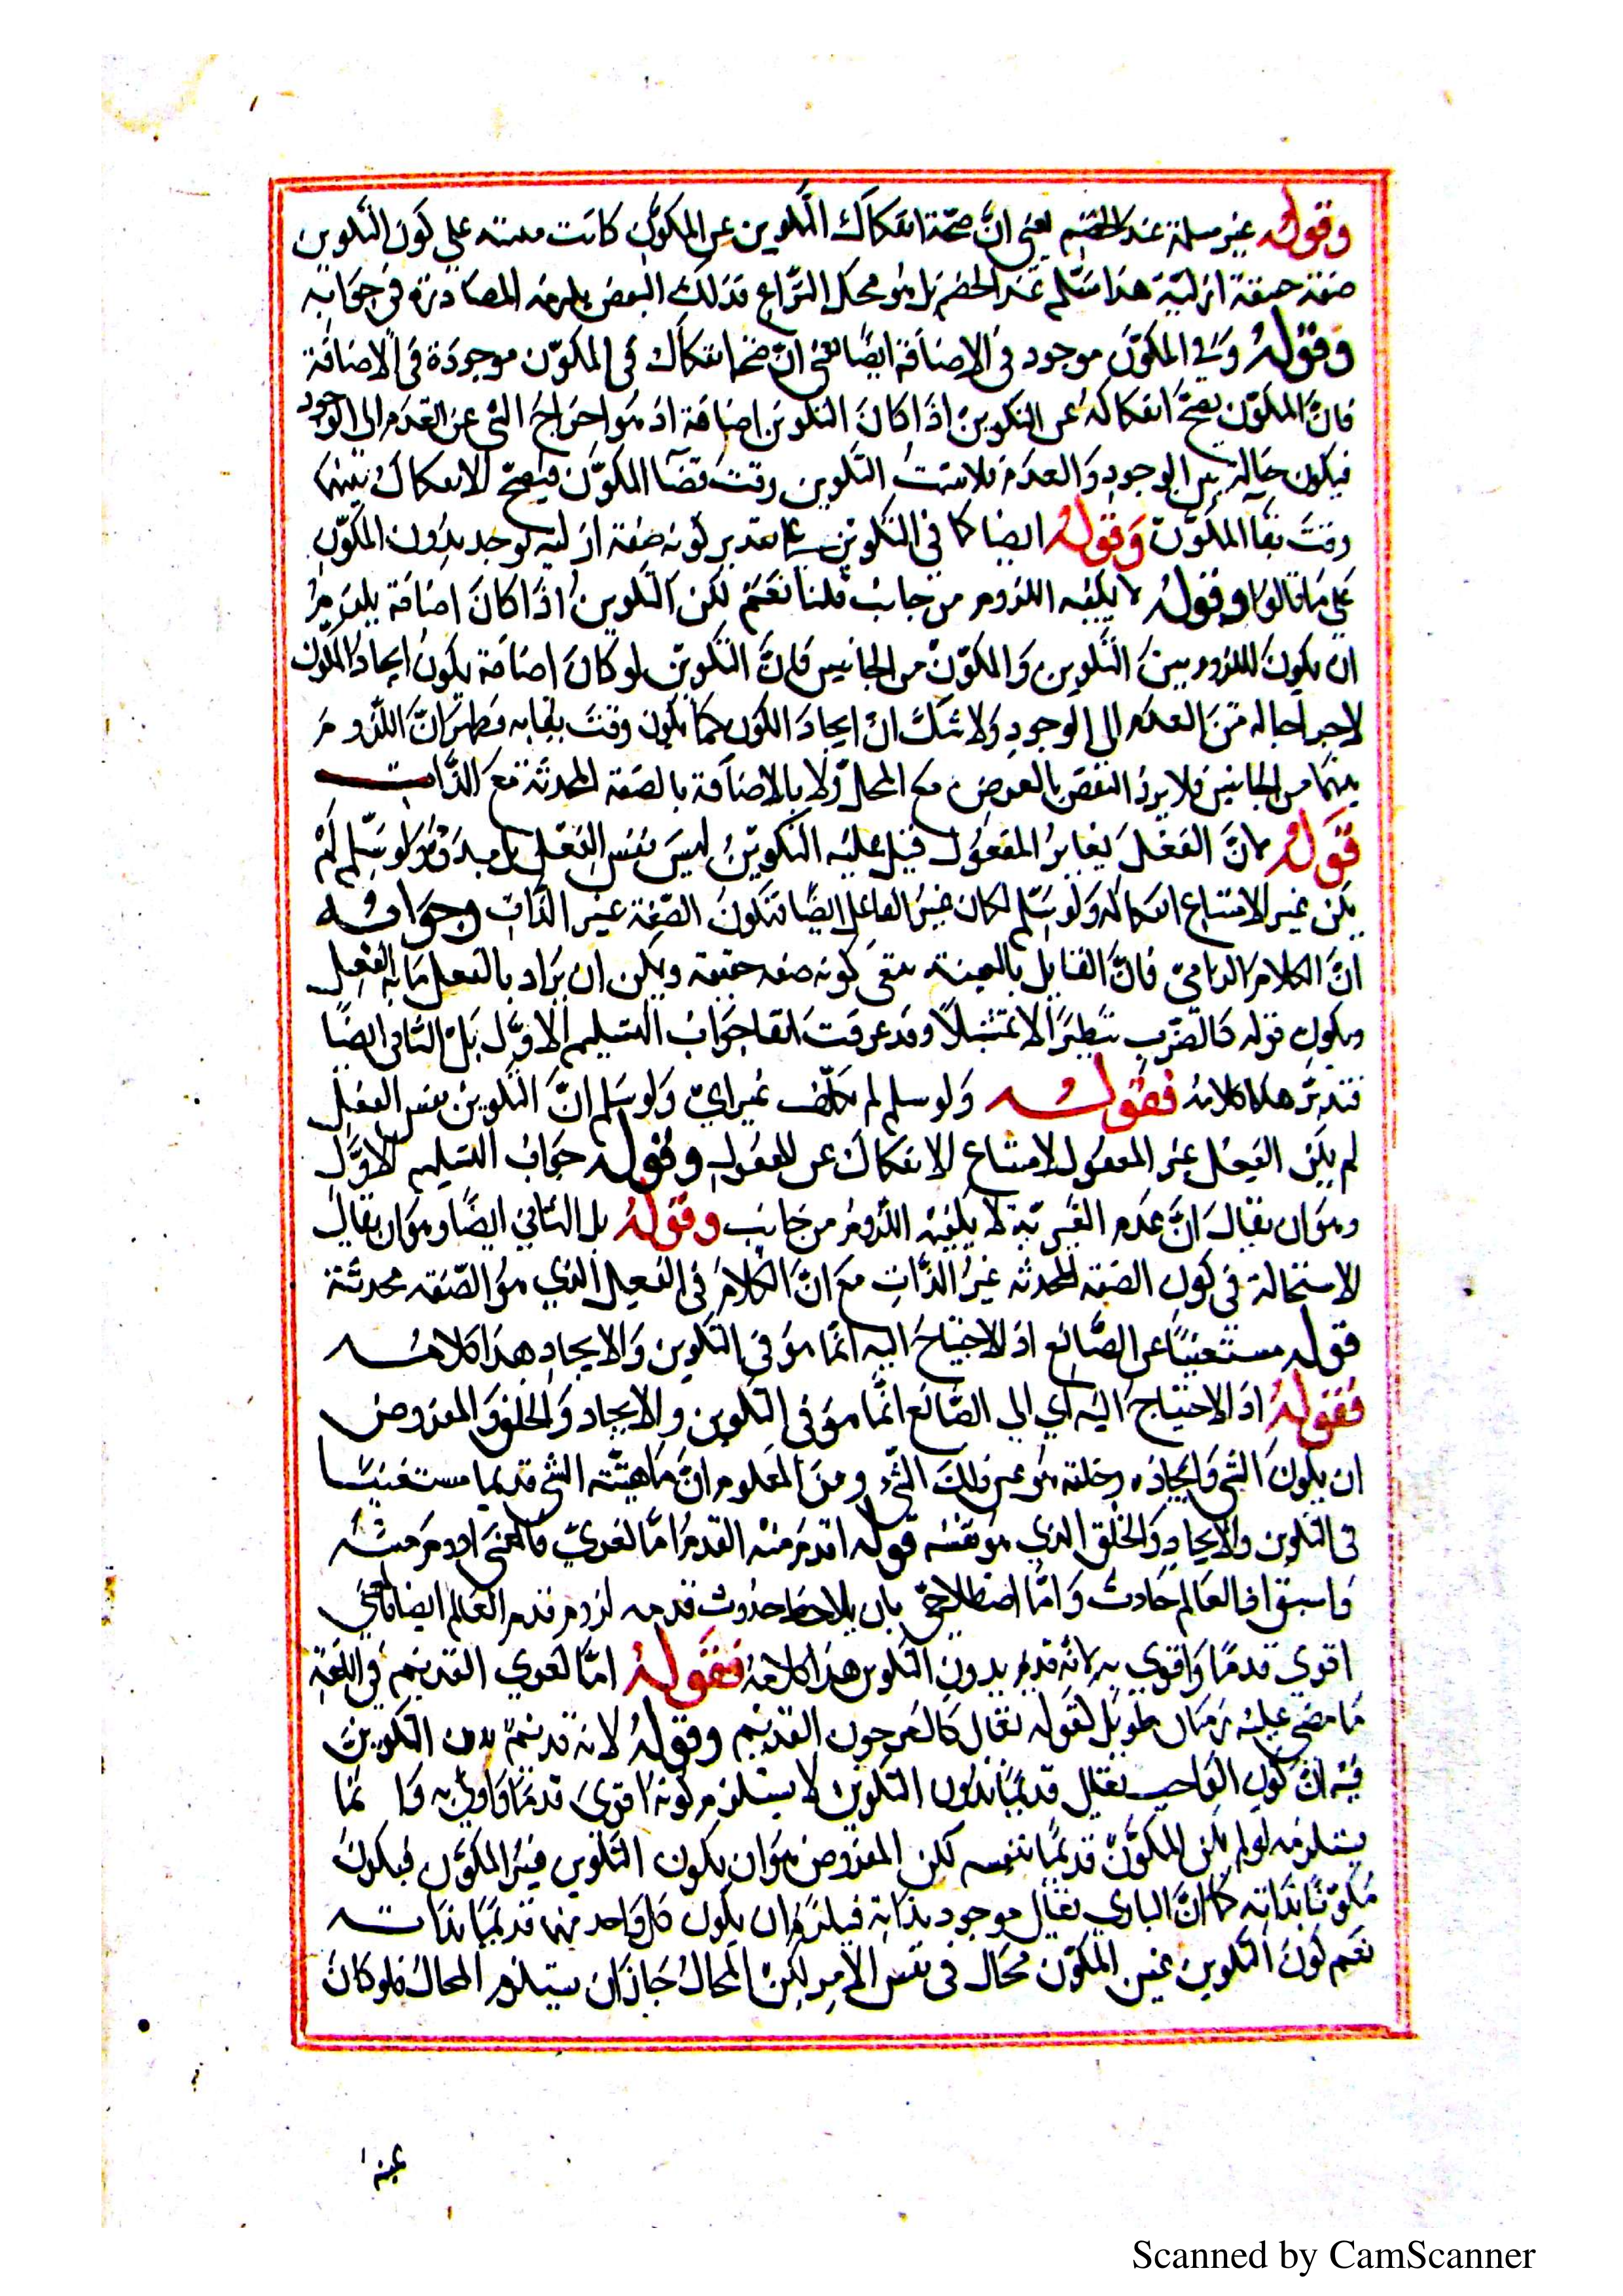 وقوله غير مسلمة عند الخصم يعني ان صحة انفكاك التكوين عن المكون كانت مبنية على كون التكوين
صفة حقيقة ازلية هذا مسلم عند الخصم بل هو محل النزاع فذلك البعض يلزمه المصادرة في جوابه
وقوله وفي المكون موجود في الاضافة ايضا يعني ان صحة انفكاك في المكون موجودة في الاضافة
فان المكون يصح انفكاكه عن التكوين اذا كان التكوين اضافة اذ هو اخراج الشي عن العدم الى الوجود
فيكون حالة بين الوجود والعدم فلا يثبت التكوين وقت قضا المكون فيصح الانفكاك بينهما
وقت بقا المكون وقوله ايضا كما في التكوين على تقدير كونه صفة ازلية يوجد بدون المكون
على ما قالوا وقوله لا يكفيه اللزوم من جانب قلنا نعم لكن التكوين اذا كان اضافة يلزم
ان يكون اللزوم بين التكوين والمكون من الجانبين فان التكوين لو كان اضافة يكون ايجاد المكون
لاخراجا له من العدم الى الوجود ولا شك ان ايجاد الكون كما يكون وقت بقايه فظهر ان اللزوم
بينهما من الجانبين فلا يرد النقض بالعرض مع المحل ولا بالاضافة بالصفة المحدثة مع الذات
قوله لان الفعل يغاير المفعول قيل عليه التكوين ليس نفس الفعل بل مبدؤه ولو سلم لم
يكن غير الامتناع انفكاكه ولو سلم لكان غير الفاعل ايضا فتكون الصفة غير الذات وجوابه
ان الكلام الزامي فان القايل بالعينية ينفي كونه صفة حقيقة ويمكن ان يراد بالفعل ما به الفعل
ويكون قوله كالضرب تنظيرا لا تمثيلا وقد عرفت انفا جواب التسليم الاول بل الثاني ايضا
فتدبر هكذا كلامه فقوله ولو سلم لم يكن غير اي ولو سلم ان التكوين نفس الفعل
لم يكن الفعل غير المفعول لامتناع الانفكاك عن المفعول وقوله جواب التسليم الاول
وهو ان يقال ان عدم الغيرية لا يكفيه اللزوم من جانب وقوله بل الثاني ايضا وهو ان يقال
لا استحالة في كون الصفة المحدثة غير الذات مع ان الكلام في الفعل الذي هو الصفة محدثة
قوله مستغنيا عن الصانع اذ الاحتياج اليه انما هو في التكوين والايجاد هذا كلامه
فقوله اذ الاحتياج اليه اي الى الصانع انما هو في التكوين والايجاد والخلق والمفروض
ان يكون الشي وايجاده وخلقه هو عين ذلك الشي ومن المعلوم ان ماهيته الشي قديما مستغنيا
في التكوين والايجاد والخلق الذي هو نفسه قوله اقدم منه القدم اما لغوي فالمعنى ادوم منه
واسبق اذ العالم حادث واما اصطلاحي بان يلاحظ حدوث قدمه لزوم قدم العالم ايضا فالمعنى
اقوى قدما واقوى به لانه قديم بدون التكوين هذا كلامه فقوله اما لغوي القديم في اللغة
ما مضى عليه زمان طويل لقوله تعالى كالعرجون القديم وقوله لانه قديم بدون التكوين
فيه ان كون الواجب تعالى قديما بدون التكوين لا يستلزم كونه اقوى قدما واولى به وانما
يستلزمه لو لم يكن المكون قديما بنفسه لكن المفروض هو ان يكون التكوين غير المكون فيكون
مكونا بذاته كما ان الباري تعالى موجود بذاته فيلزم ان يكون كل واحد منهما قديما بذاته
نعم كون التكوين عين المكون محال في نفس الامر لكن المحال جاز ان يستلزم المحال فلو كان
عينه
Scanned by CamScanner